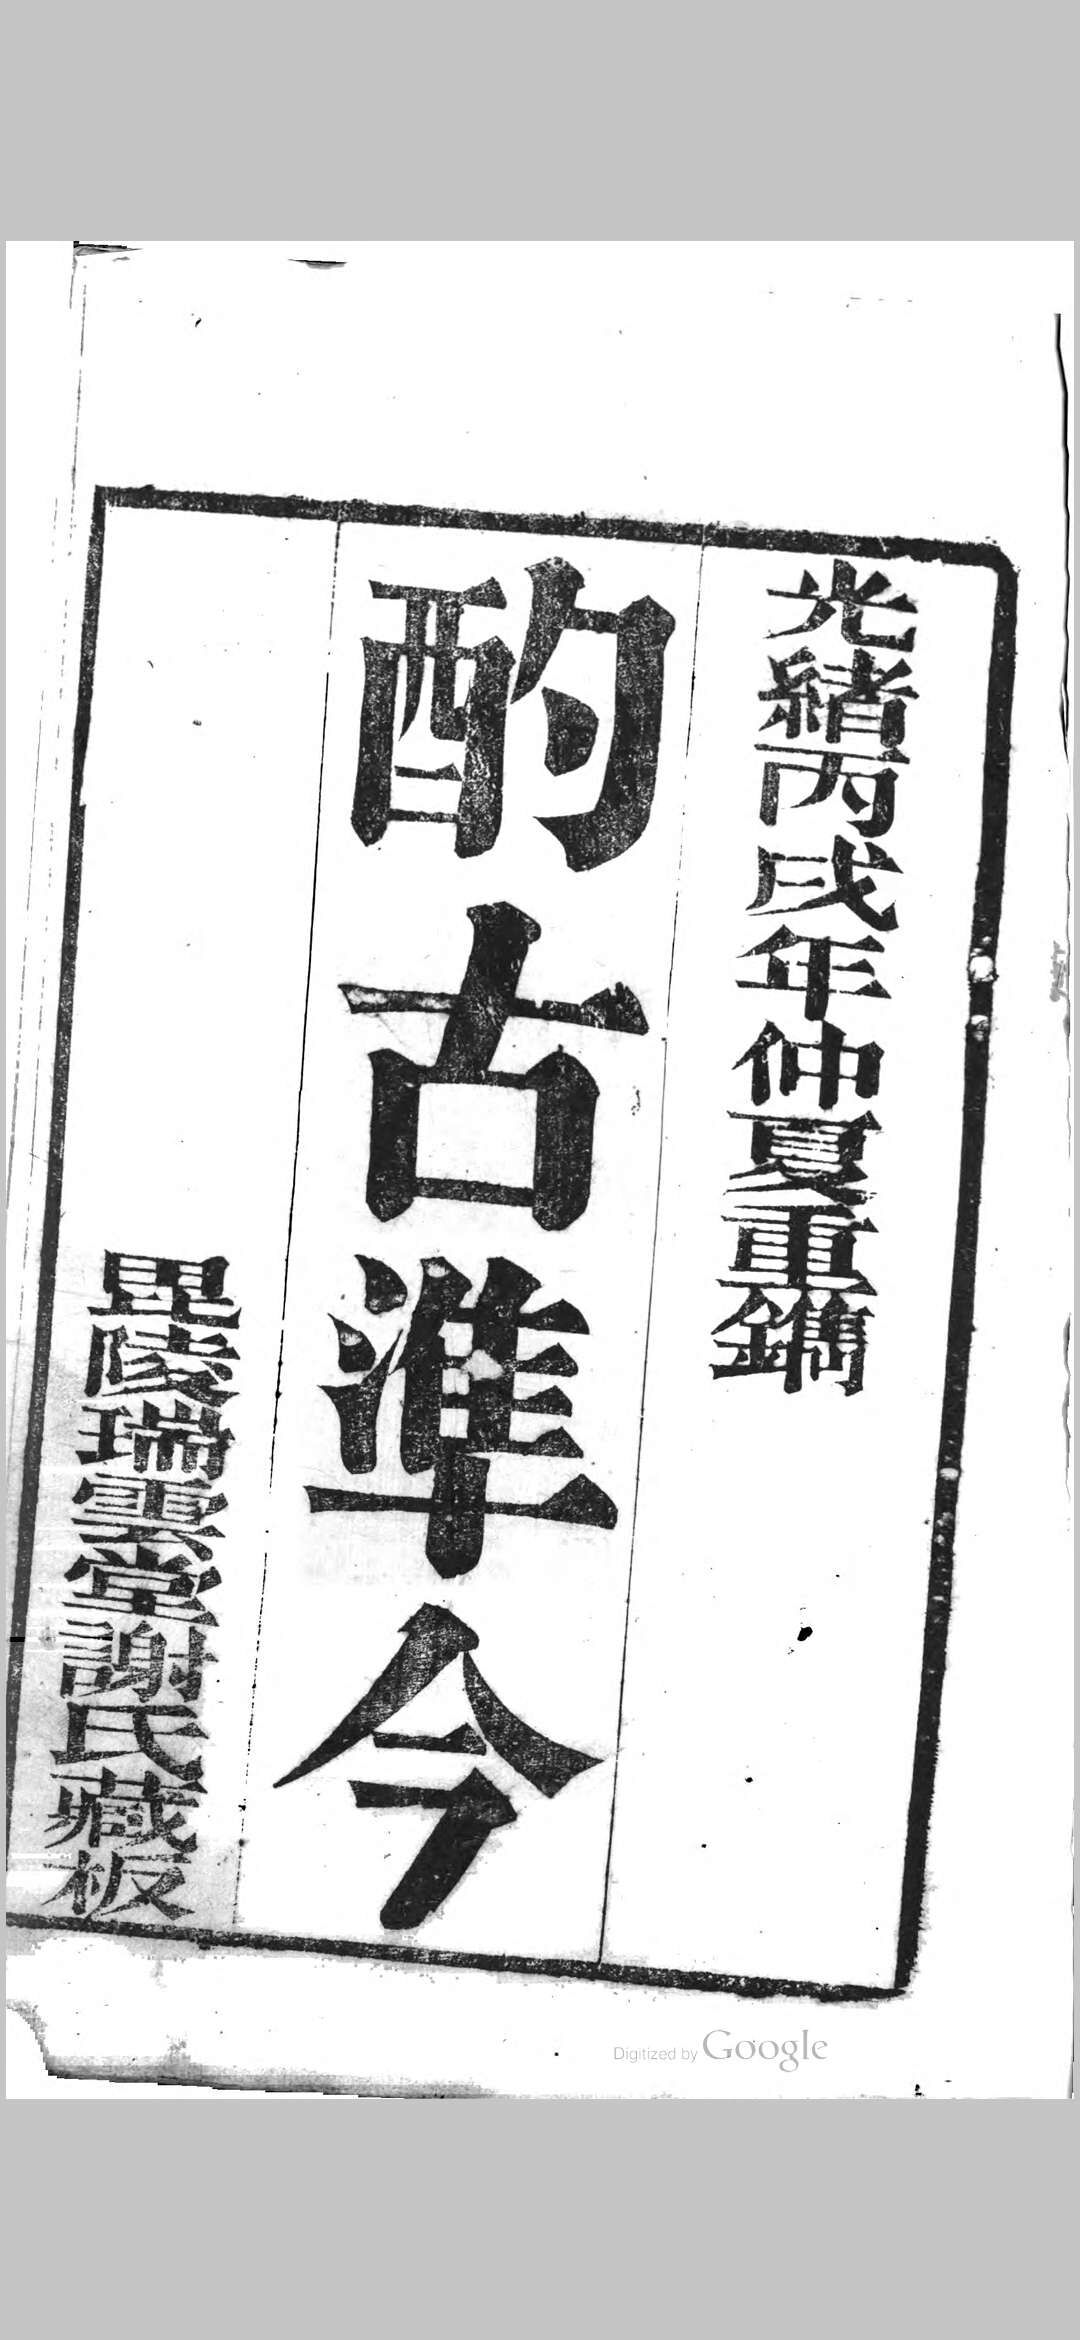 光緒丙戌年仲夏重鐫
酌古準今
毘陵瑞雲堂謝氏藏板
Digitized by Google